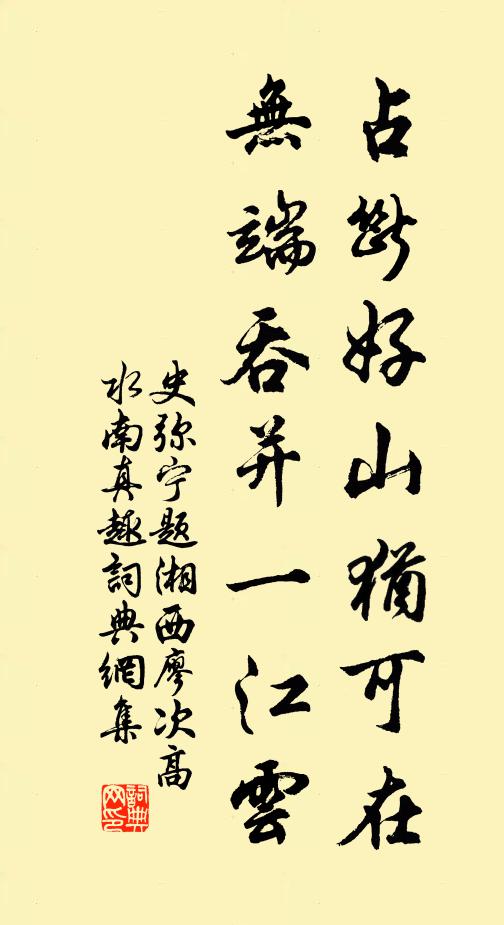 占断好山猶可在
無端吞并一江雲
史弥宁题湘西廖次高
水南真趣詞典網集
詞典网印